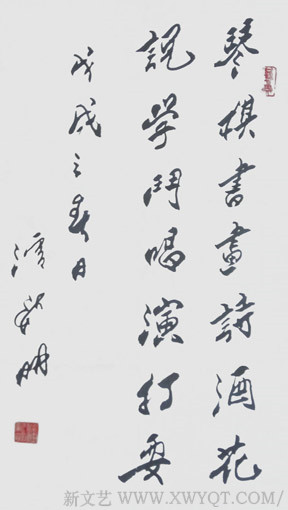 琴棋書畫詩酒花
説学鬥唱演打耍
戊戌之春日
新文艺 / WWW.XWYQT.COM